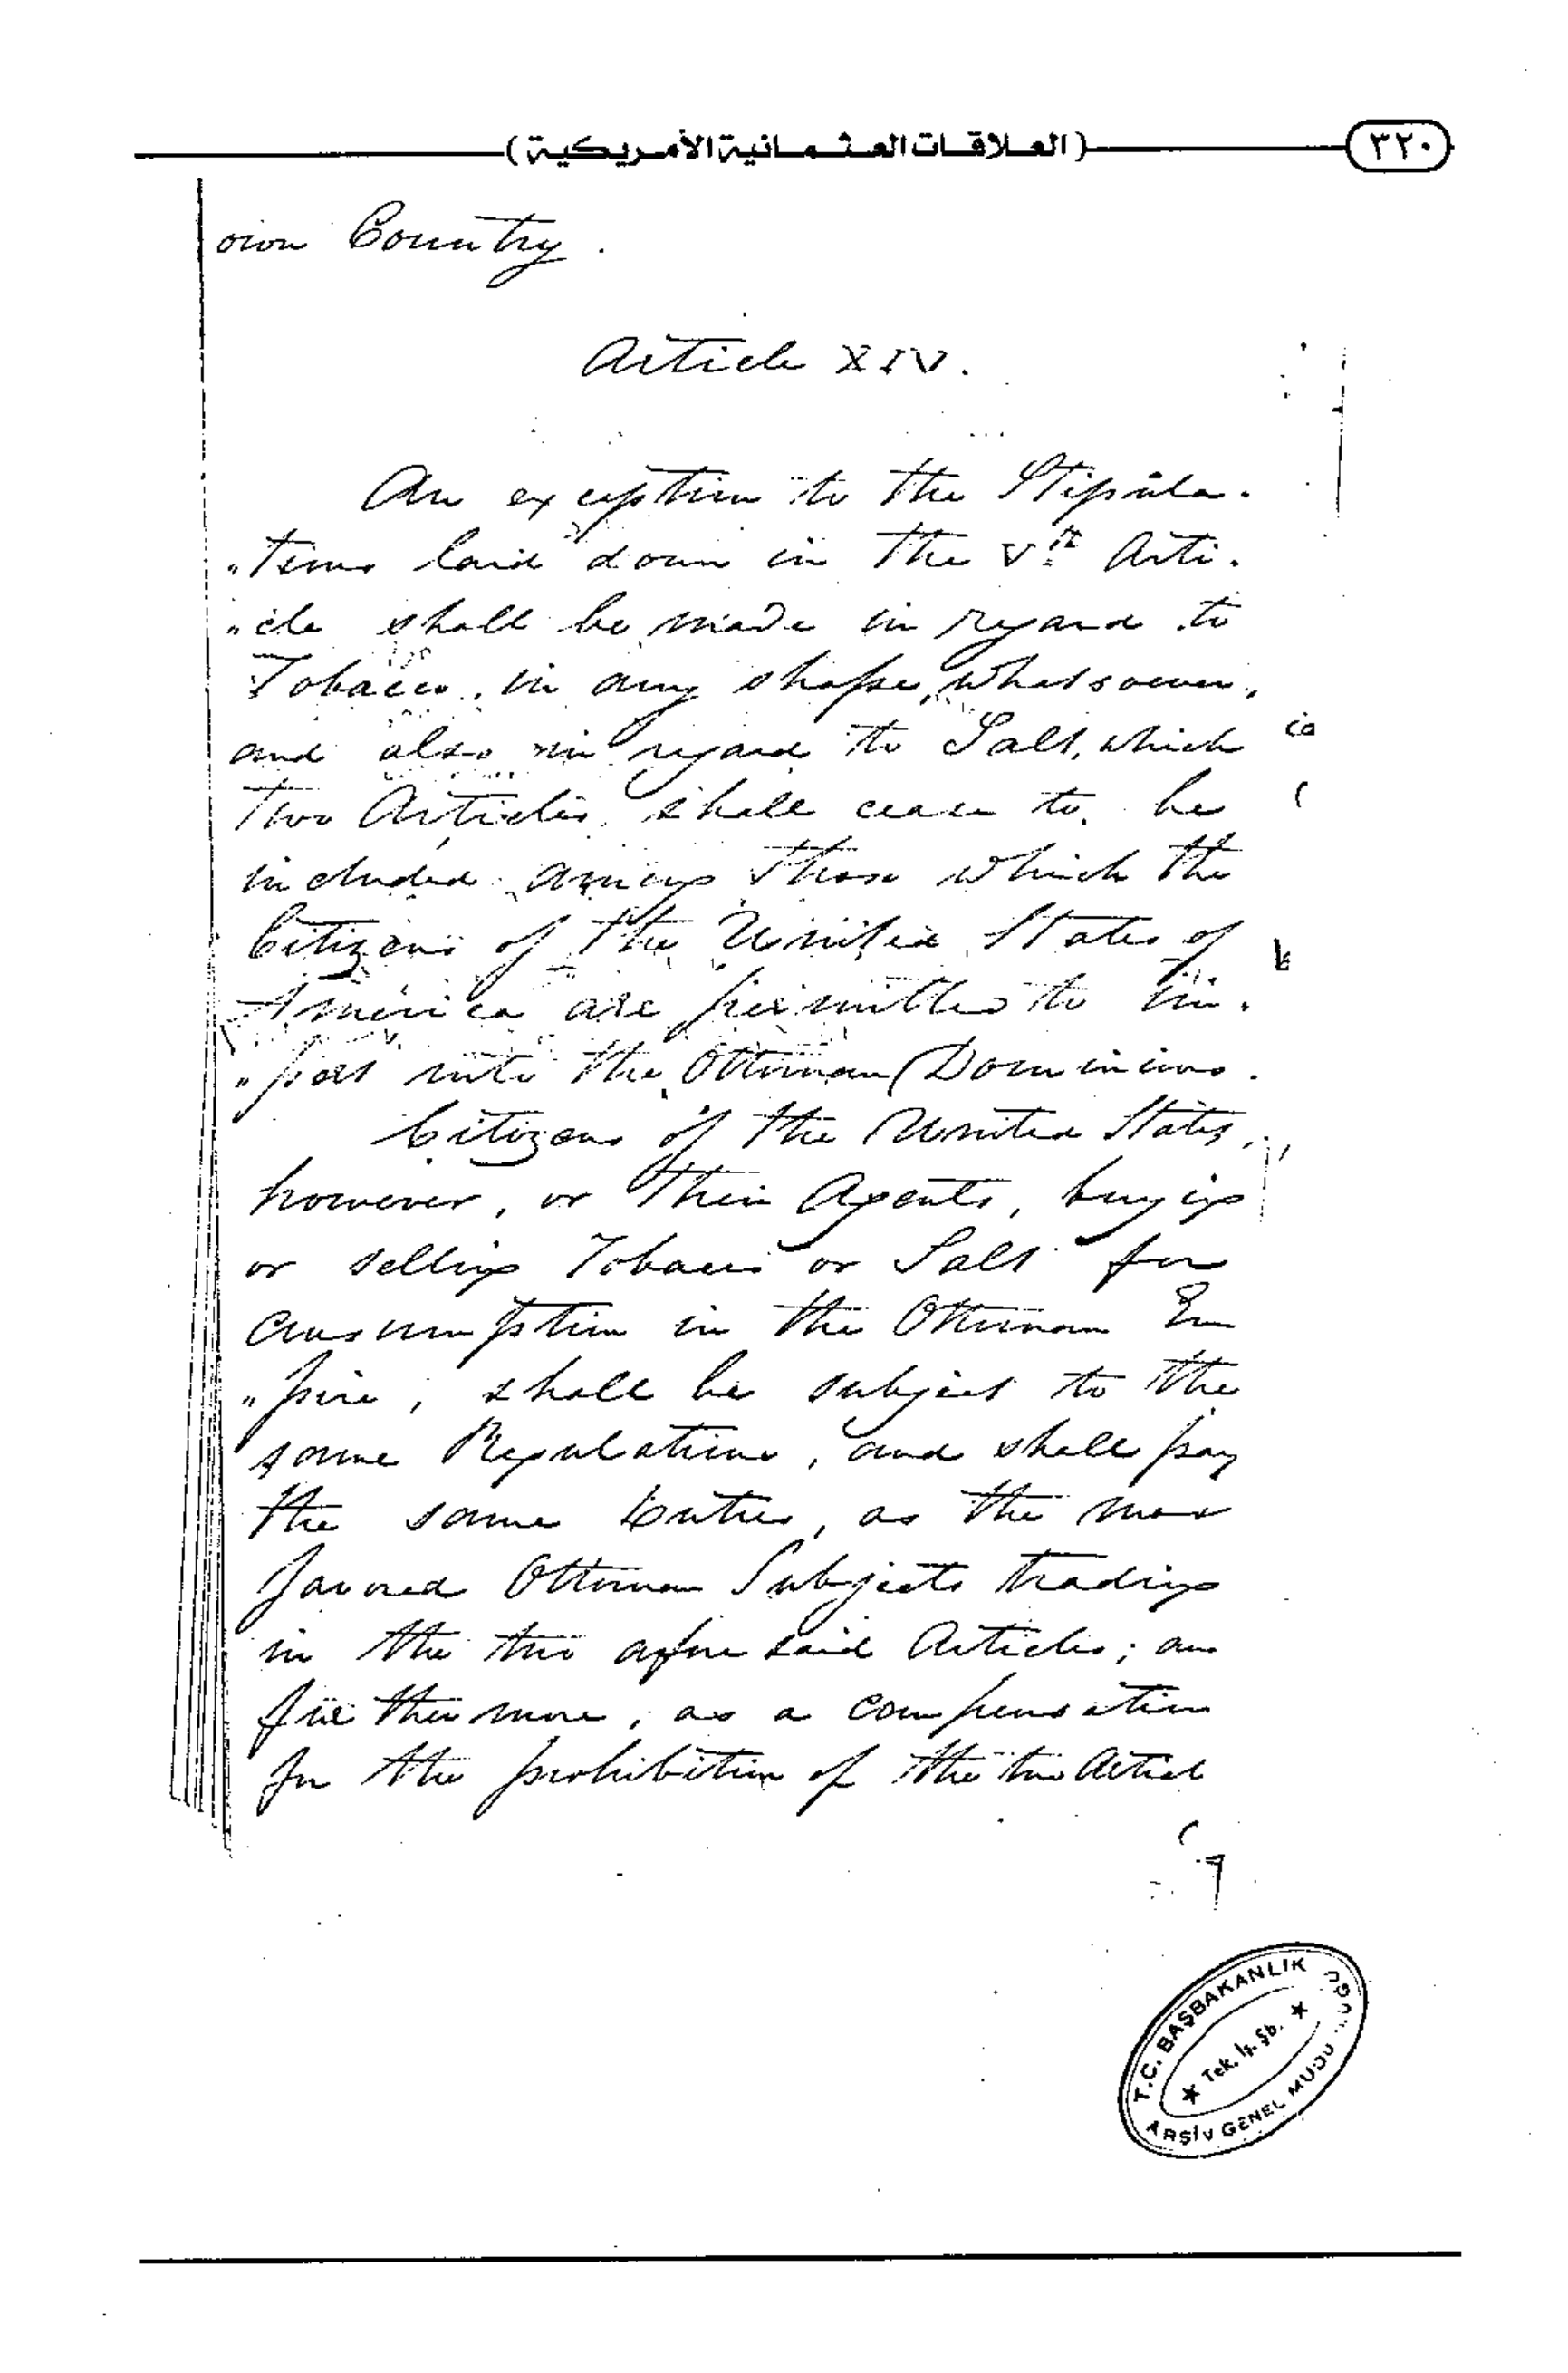 (العلاقات العثمانية الأمريكية)
٣٢٠
own Country.
Article XIV.
An exception to the Stipula-
"tions laid down in the Vth Arti-
"cle shall be made in regard to
Tobacco, in any shape whatsoever,
and also in regard to Salt, which
two Articles shall cease to be
included among those which the
Citizens of the United States of
America are permitted to im-
"port into the Ottoman Dominions.
Citizens of the United States,
however, or their Agents, buying
or selling Tobacco or Salt for
consumption in the Ottoman Em
"pire, shall be subject to the
same Regulations, and shall pay
the same Duties, as the mos
favored Ottoman Subjects trading
in the two aforesaid Articles; an
furthermore, as a compensation
for the prohibition of the two Articl
T.C. BAŞBAKANLIK
Tek. İş. Şb.
ARŞİV GENEL MÜDÜ